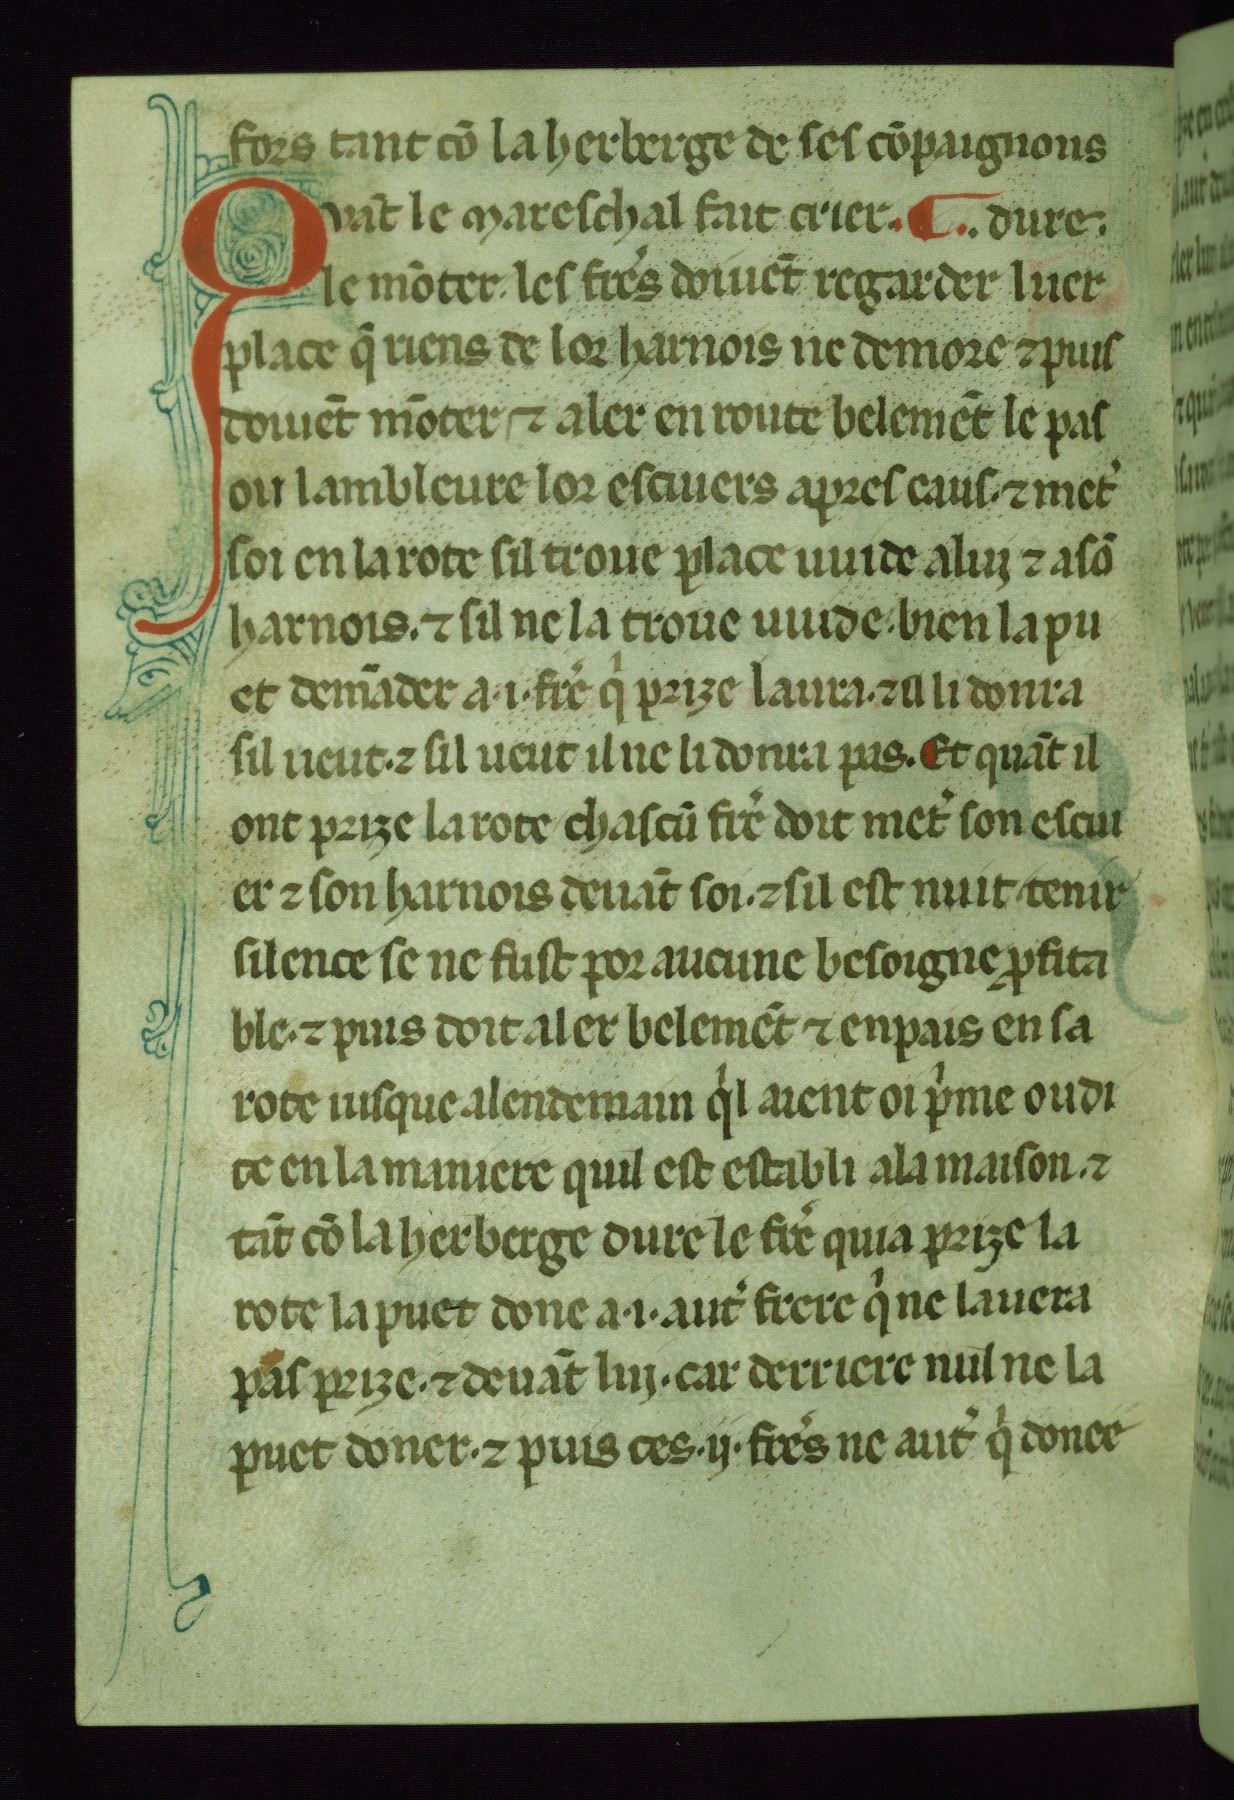 fors tant cō la herberge de ses cōpaignons
Qvāt le mareschal fait crier. ¶.. dure.
le mōter. les fres doiuēt regarder luer
place q̄ riens de lor harnois ne demore ⁊ puis
doiuēt mōter ⁊ aler en route belemēt le pas
ou lambleure lor esciuers apres eaus. ⁊ met᾿
soi en la rote sil troue place uuide a luy ⁊ a sō
harnois. ⁊ sil ne la troue uuide. bien la pu
et demāder a .i. fre q̍ prize laura. ⁊ il li donra
sil ueut. ⁊ sil ueut il ne li donra pas. Et quāt il
ont prize la rote chascū fre doit met᾿ son esciu
er ⁊ son harnois deuāt soi. ⁊ sil est nuit tenir
silence se ne fust por aucune besoigne ꝓfita
ble. ⁊ puis doit aler belemēt ⁊ en pais en sa
rote iusque a lendemain q̍l aient oi p̍me ou di
te en la maniere quil est establi a la maison. ⁊
tāt cō la herberge dure le fre qui a prize la
rote la puet done a .i. aut᾿ frere q̍ ne lauera
pas prize. ⁊ deuāt luy. car derriere nul ne la
puet doner. ⁊ puis ces .ij. fres ne aut᾿ q̍ donee